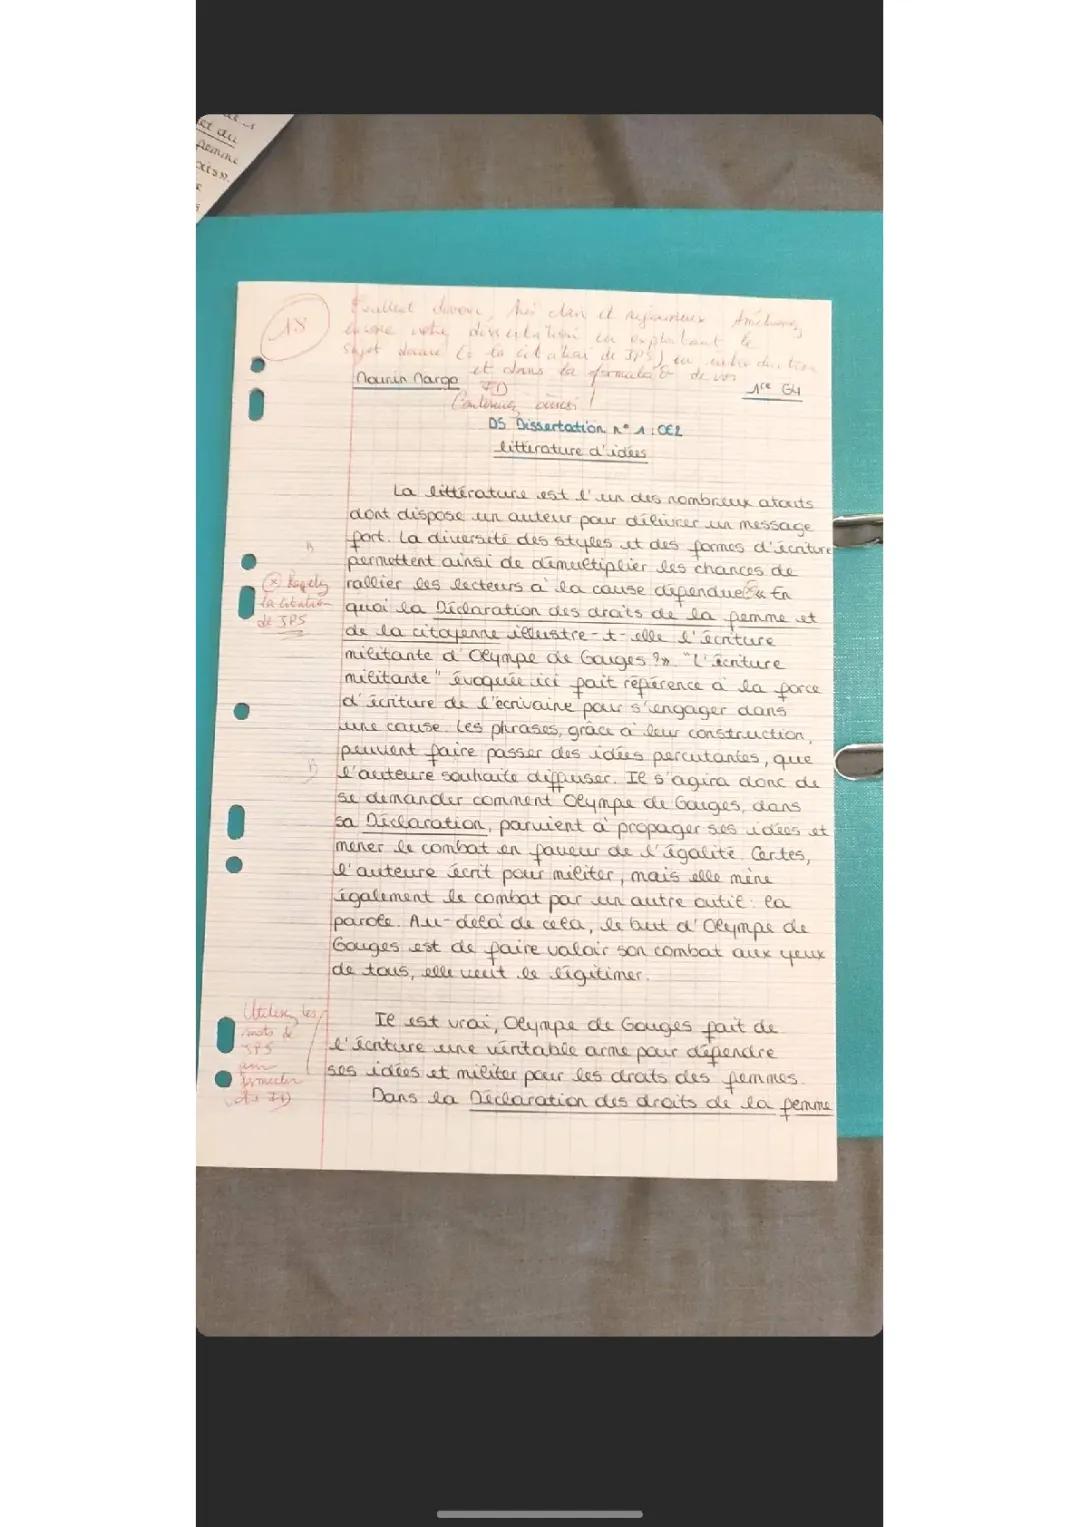 et du
femme
18
Excellent devoir, très clair et rigoureux. Améliorez
encore votre dissertation en exploitant le
sujet donné (cf la citation de JPS) en introduction
et dans la formulat° de vos
Nourin Margo
ID
1re G4
Continuez ainsi !
DS Dissertation n°1 : OE2
littérature d'idées
La littérature est l'un des nombreux atouts
dont dispose un auteur pour délivrer un message
fort. La diversité des styles et des formes d'écriture
permettent ainsi de démultiplier les chances de
rallier les lecteurs à la cause défendue. « En
quoi la Déclaration des droits de la femme et
de la citoyenne illustre-t-elle l'écriture
militante d'Olympe de Gouges ?». "L'écriture
militante" évoquée ici fait référence à la force
d'écriture de l'écrivaine pour s'engager dans
une cause. Les phrases, grâce à leur construction,
peuvent faire passer des idées percutantes, que
l'auteure souhaite diffuser. Il s'agira donc de
se demander comment Olympe de Gouges, dans
sa Déclaration, parvient à propager ses idées et
mener le combat en faveur de l'égalité. Certes,
l'auteure écrit pour militer, mais elle mène
également le combat par un autre outil : la
parole. Au-delà de cela, le but d'Olympe de
Gouges est de faire valoir son combat aux yeux
de tous, elle veut le légitimer.
Il est vrai, Olympe de Gouges fait de
l'écriture une véritable arme pour défendre
ses idées et militer pour les droits des femmes.
Dans la Déclaration des droits de la femme
la citation
de JPS
Utilisez les
mots de
JPS
pour
formuler
vos ID